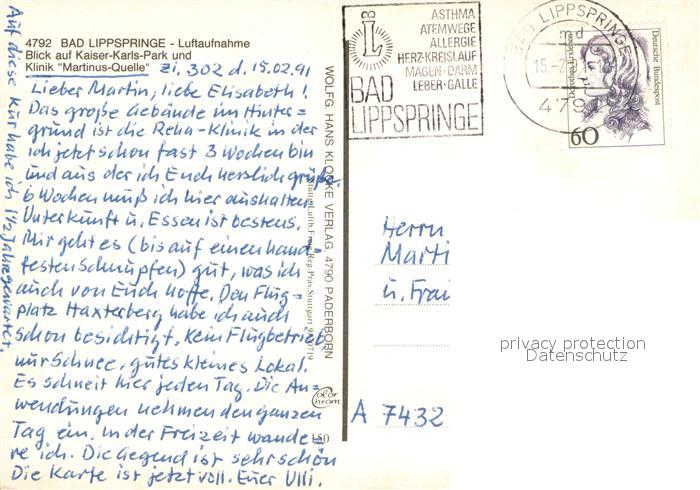 4792 BAD LIPPSPRINGE - Luftaufnahme
Blick auf Kaiser-Karls-Park und
Klinik "Martinus-Quelle"
Zi, 302 d. 15.02.91
Lieber Martin, liebe Elisabeth!
Das große Gebäude im Hinter=
grund ist die Reha-Klinik in der
ich jetzt schon fast 3 Wochen bin
und aus der ich Euch herzlich grüße.
6 Wochen muß ich hier aushalten
Unterkunft u. Essen ist bestens.
Mir geht es (bis auf einen hand=
festen Schnupfen) gut, was ich
auch von Euch hoffe. Den Flug=
platz Haxterberg habe ich auch
schon besichtigt, kein Flugbetrieb,
nur Schnee, gutes kleines Lokal.
Es schneit hier jeden Tag. Die An=
wendungen nehmen den ganzen
Tag ein. In der Freizeit wande=
re ich. Die Gegend ist sehr schön
Die Karte ist jetzt voll. Euer Ulli.
Auf diese Kur habe ich 1 1/2 Jahre gewartet.
WOLFG. HANS KLOCKE VERLAG, 4790 PADERBORN
Color
Chrom
150
LB
ASTHMA
ATEMWEGE
ALLERGIE
HERZ-KREISLAUF
MAGEN-DARM
LEBER-GALLE
BAD
LIPPSPRINGE
BAD LIPPSPRINGE
md
479
Deutsche Bundespost
60
Herrn
Marti
u. Frau
A 7432
privacy protection
Datenschutz